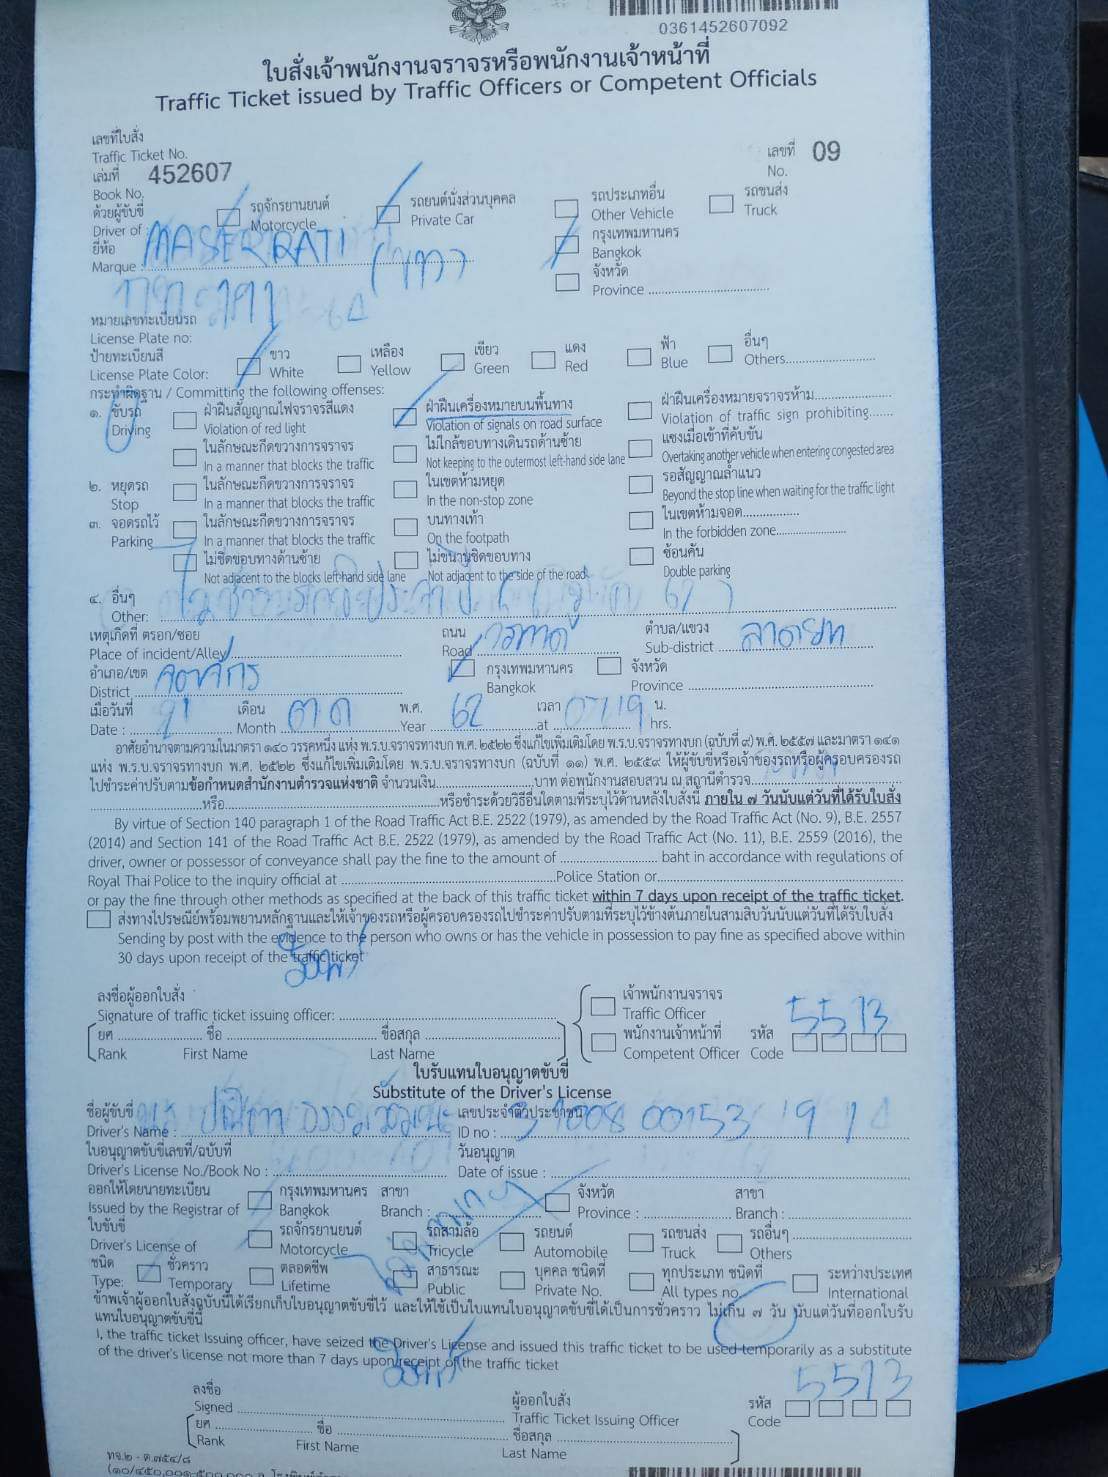 0361452607092
ใบสั่งเจ้าพนักงานจราจรหรือพนักงานเจ้าหน้าที่
Traffic Ticket issued by Traffic Officers or Competent Officials
เลขที่ใบสั่ง
Traffic Ticket No.
เล่มที่ 452607 เลขที่ 09
Book No. No.
ด้วยผู้ขับขี่ รถจักรยานยนต์ รถยนต์นั่งส่วนบุคคล รถประเภทอื่น รถขนส่ง
Driver of : Motorcycle Private Car Other Vehicle Truck
ยี่ห้อ MASERRATI กรุงเทพมหานคร
Marque : (ขาว) Bangkok
จังหวัด
Province
หมายเลขทะเบียนรถ
License Plate no:
ป้ายทะเบียนสี ขาว เหลือง เขียว แดง ฟ้า อื่นๆ
License Plate Color: White Yellow Green Red Blue Others
กระทำผิดฐาน / Committing the following offenses:
๑. ขับรถ ฝ่าฝืนสัญญาณไฟจราจรสีแดง ฝ่าฝืนเครื่องหมายบนพื้นทาง ฝ่าฝืนเครื่องหมายจราจรห้าม
Driving Violation of red light Violation of signals on road surface Violation of traffic sign prohibiting
ในลักษณะกีดขวางการจราจร ไม่ใกล้ขอบทางเดินรถด้านซ้าย แซงเมื่อเข้าที่คับขัน
In a manner that blocks the traffic Not keeping to the outermost left-hand side lane Overtaking another vehicle when entering congested area
๒. หยุดรถ ในลักษณะกีดขวางการจราจร ในเขตห้ามหยุด รอสัญญาณล้ำแนว
Stop In a manner that blocks the traffic In the non-stop zone Beyond the stop line when waiting for the traffic light
๓. จอดรถไว้ ในลักษณะกีดขวางการจราจร บนทางเท้า ในเขตห้ามจอด
Parking In a manner that blocks the traffic On the footpath In the forbidden zone
ไม่ชิดขอบทางด้านซ้าย ไม่ขนานชิดขอบทาง ซ้อนคัน
Not adjacent to the blocks left-hand side lane Not adjacent to the side of the road Double parking
๔. อื่นๆ
Other:
เหตุเกิดที่ ตรอก/ซอย ถนน ตำบล/แขวง ลาดยาว
Place of incident/Alley Road Sub-district
อำเภอ/เขต จตุจักร กรุงเทพมหานคร จังหวัด
District Bangkok Province
เมื่อวันที่ เดือน ตค พ.ศ. 62 เวลา 07.19 น.
Date : Month Year at hrs.
อาศัยอำนาจตามความในมาตรา ๑๔๐ วรรคหนึ่ง แห่ง พ.ร.บ.จราจรทางบก พ.ศ. ๒๕๒๒ ซึ่งแก้ไขเพิ่มเติมโดย พ.ร.บ.จราจรทางบก (ฉบับที่ ๙) พ.ศ. ๒๕๕๗ และมาตรา ๑๔๑
แห่ง พ.ร.บ.จราจรทางบก พ.ศ. ๒๕๒๒ ซึ่งแก้ไขเพิ่มเติมโดย พ.ร.บ.จราจรทางบก (ฉบับที่ ๑๑) พ.ศ. ๒๕๕๙ ให้ผู้ขับขี่หรือเจ้าของรถหรือผู้ครอบครองรถ
ไปชำระค่าปรับตามข้อกำหนดสำนักงานตำรวจแห่งชาติ จำนวนเงิน บาท ต่อพนักงานสอบสวน ณ สถานีตำรวจ
หรือ หรือชำระด้วยวิธีอื่นใดตามที่ระบุไว้ด้านหลังใบสั่งนี้ ภายใน ๗ วันนับแต่วันที่ได้รับใบสั่ง
By virtue of Section 140 paragraph 1 of the Road Traffic Act B.E. 2522 (1979), as amended by the Road Traffic Act (No. 9), B.E. 2557
(2014) and Section 141 of the Road Traffic Act B.E. 2522 (1979), as amended by the Road Traffic Act (No. 11), B.E. 2559 (2016), the
driver, owner or possessor of conveyance shall pay the fine to the amount of baht in accordance with regulations of
Royal Thai Police to the inquiry official at Police Station or
or pay the fine through other methods as specified at the back of this traffic ticket within 7 days upon receipt of the traffic ticket.
ส่งทางไปรษณีย์พร้อมพยานหลักฐานและให้เจ้าของรถหรือผู้ครอบครองรถไปชำระค่าปรับตามที่ระบุไว้ข้างต้นภายในสามสิบวันนับแต่วันที่ได้รับใบสั่ง
Sending by post with the evidence to the person who owns or has the vehicle in possession to pay fine as specified above within
30 days upon receipt of the traffic ticket
ลงชื่อผู้ออกใบสั่ง เจ้าพนักงานจราจร
Signature of traffic ticket issuing officer: Traffic Officer 5513
ยศ ชื่อ ชื่อสกุล พนักงานเจ้าหน้าที่ รหัส
Rank First Name Last Name Competent Officer Code
ใบรับแทนใบอนุญาตขับขี่
Substitute of the Driver's License
ชื่อผู้ขับขี่ เลขประจำตัวประชาชน
Driver's Name : ID no :
ใบอนุญาตขับขี่เลขที่/ฉบับที่ วันอนุญาต
Driver's License No./Book No : Date of issue :
ออกให้โดยนายทะเบียน กรุงเทพมหานคร สาขา จังหวัด สาขา
Issued by the Registrar of Bangkok Branch : Province : Branch :
ใบขับขี่ รถจักรยานยนต์ รถสามล้อ รถยนต์ รถขนส่ง รถอื่นๆ
Driver's License of Motorcycle Tricycle Automobile Truck Others
ชนิด ชั่วคราว ตลอดชีพ สาธารณะ บุคคล ชนิดที่ ทุกประเภท ชนิดที่ ระหว่างประเทศ
Type: Temporary Lifetime Public Private No. All types no. International
ข้าพเจ้าผู้ออกใบสั่งฉบับนี้ได้เรียกเก็บใบอนุญาตขับขี่ไว้ และให้ใช้เป็นใบแทนใบอนุญาตขับขี่ได้เป็นการชั่วคราว ไม่เกิน ๗ วัน นับแต่วันที่ออกใบรับ
แทนใบอนุญาตขับขี่นี้
I, the traffic ticket Issuing officer, have seized the Driver's License and issued this traffic ticket to be used temporarily as a substitute
of the driver's license not more than 7 days upon receipt of the traffic ticket
5513
ลงชื่อ ผู้ออกใบสั่ง รหัส
Signed Traffic Ticket Issuing Officer Code
ยศ ชื่อ ชื่อสกุล
Rank First Name Last Name